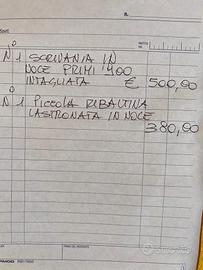 N° 1 SCRIVANIA IN
NOCE PRIMI '900
INTAGLIATA € 500,00
N° 1 PICCOLA RIBALTINA
LASTRONATA IN NOCE
380,00